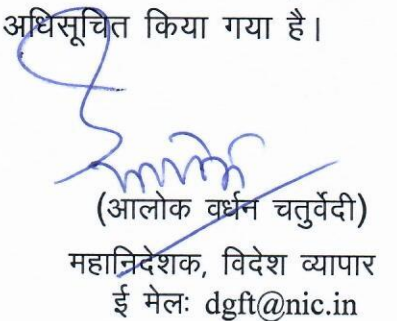 अधिसूचित किया गया है।
(आलोक वर्धन चतुर्वेदी)
महानिदेशक, विदेश व्यापार
ई मेलः dgft@nic.in